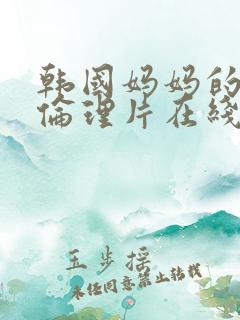 韩国妈妈的
伦理片在线
玉步摇
未经同意禁止转载